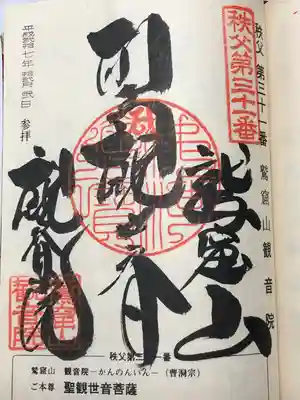 秩父第三十一番
秩父第三十一番 鷲窟山観音院
鷲窟山
聖観世音
観音院
平成 七年 月 日 参拝
秩父第三十一番
鷲窟山 観音院—かんのんいん—(曹洞宗)
ご本尊 聖観世音菩薩